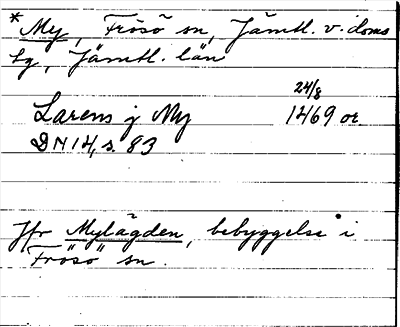 * My, Frösö sn, Jämtl. v. doms
tg, Jämtl. län
Larens j My 24/8 1469 or.
DN 14, s. 83
Jfr "Mylägden", bebyggelse i
Frösö sn.